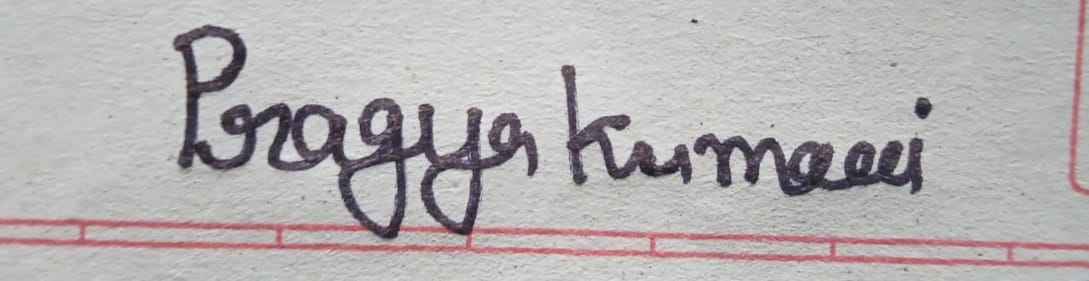 Pragya kumari